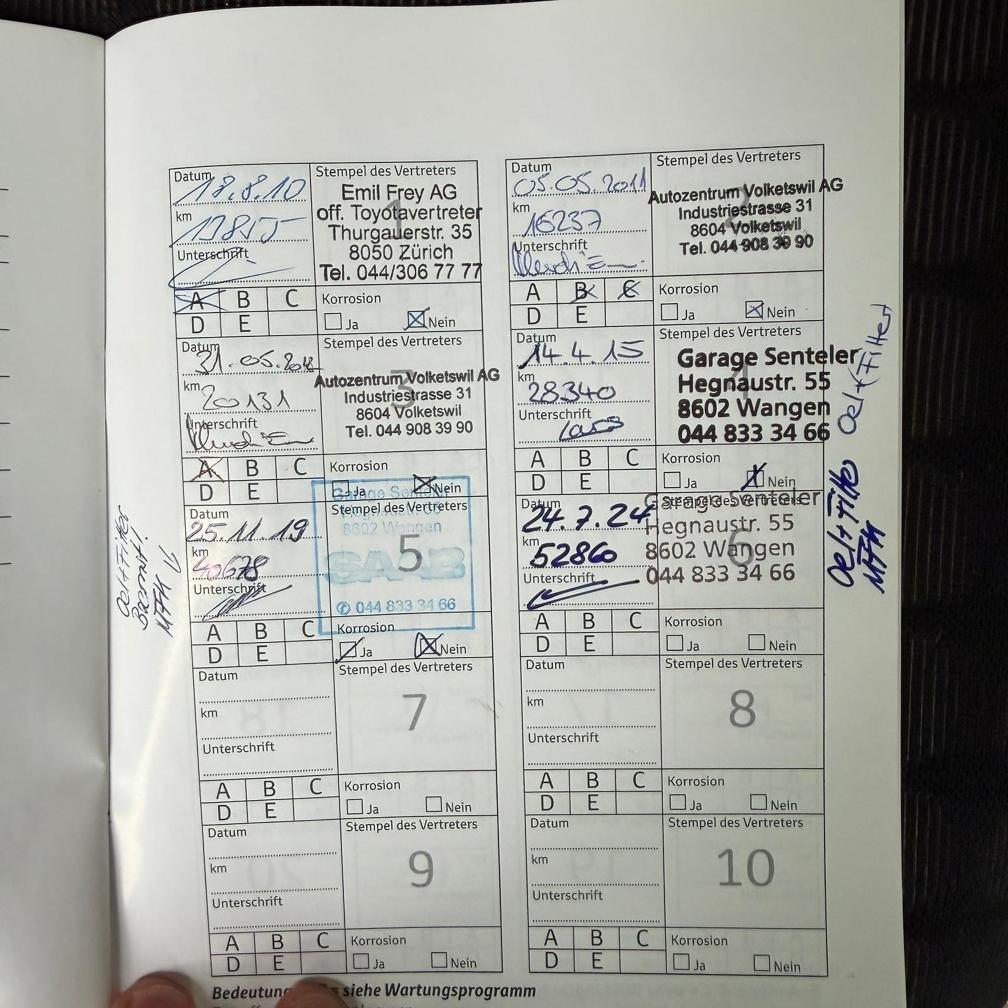 Datum
18.8.10
km
Unterschrift
Stempel des Vertreters
1
Emil Frey AG
off. Toyotavertreter
Thurgauerstr. 35
8050 Zürich
Tel. 044/306 77 77
A B C
D E
Korrosion
Ja Nein
Datum
05.05.2011
km
16237
Unterschrift
Stempel des Vertreters
2
Autozentrum Volketswil AG
Industriestrasse 31
8604 Volketswil
Tel. 044 908 39 90
A B C
D E
Korrosion
Ja Nein
Datum
31.05.2012
km
20131
Unterschrift
Stempel des Vertreters
3
Autozentrum Volketswil AG
Industriestrasse 31
8604 Volketswil
Tel. 044 908 39 90
A B C
D E
Korrosion
Ja Nein
Datum
14.4.15
km
28340
Unterschrift
Stempel des Vertreters
Garage Senteler
Hegnaustr. 55
8602 Wangen
044 833 34 66
Oel+Filter
A B C
D E
Korrosion
Ja Nein
Datum
25.11.19
km
40678
Unterschrift
Stempel des Vertreters
5
8602 Wangen
SAAB
044 833 34 66
Oel+Filter
MFK
A B C
D E
Korrosion
Ja Nein
Datum
24.7.24
km
52860
Unterschrift
Stempel des Vertreters
6
Garage Senteler
Hegnaustr. 55
8602 Wangen
044 833 34 66
Oel+Filter
MFK
A B C
D E
Korrosion
Ja Nein
Datum
km
Unterschrift
Stempel des Vertreters
7
A B C
D E
Korrosion
Ja Nein
Datum
km
Unterschrift
Stempel des Vertreters
8
A B C
D E
Korrosion
Ja Nein
Datum
km
Unterschrift
Stempel des Vertreters
9
A B C
D E
Korrosion
Ja Nein
Datum
km
Unterschrift
Stempel des Vertreters
10
A B C
D E
Korrosion
Ja Nein
siehe Wartungsprogramm